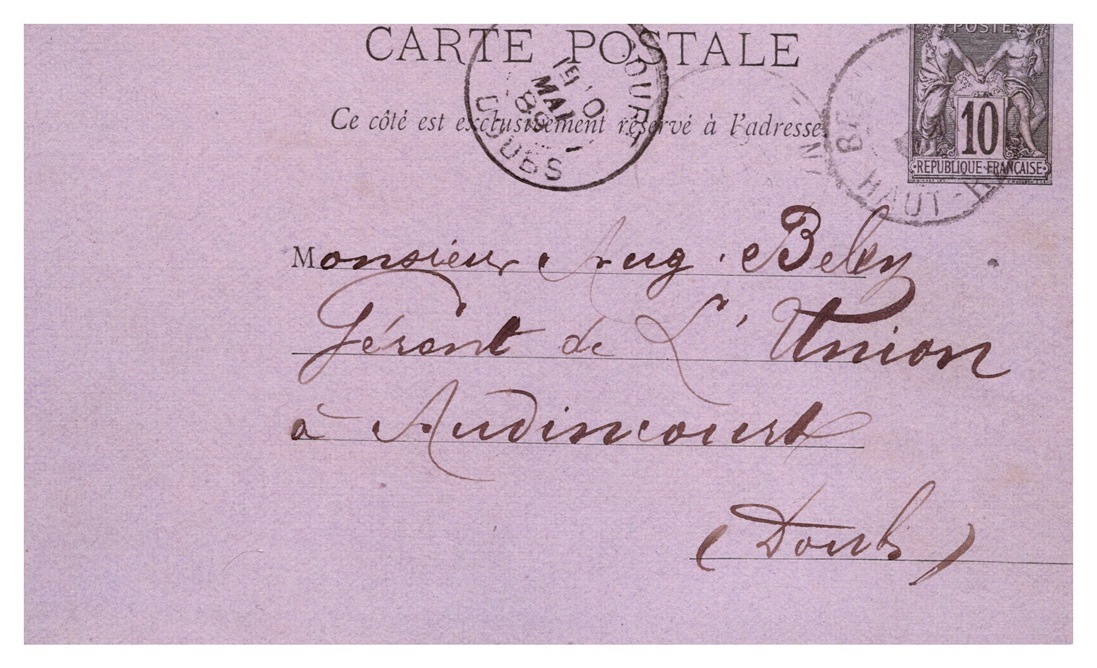 CARTE POSTALE
Ce côté est exclusivement réservé à l'adresse
POSTE
10
REPUBLIQUE FRANÇAISE
COURT
MAI
89
DOUBS
HAUT-R
Monsieur Aug. Beley
Gérant de L'Union
à Audincourt
(Doubs)